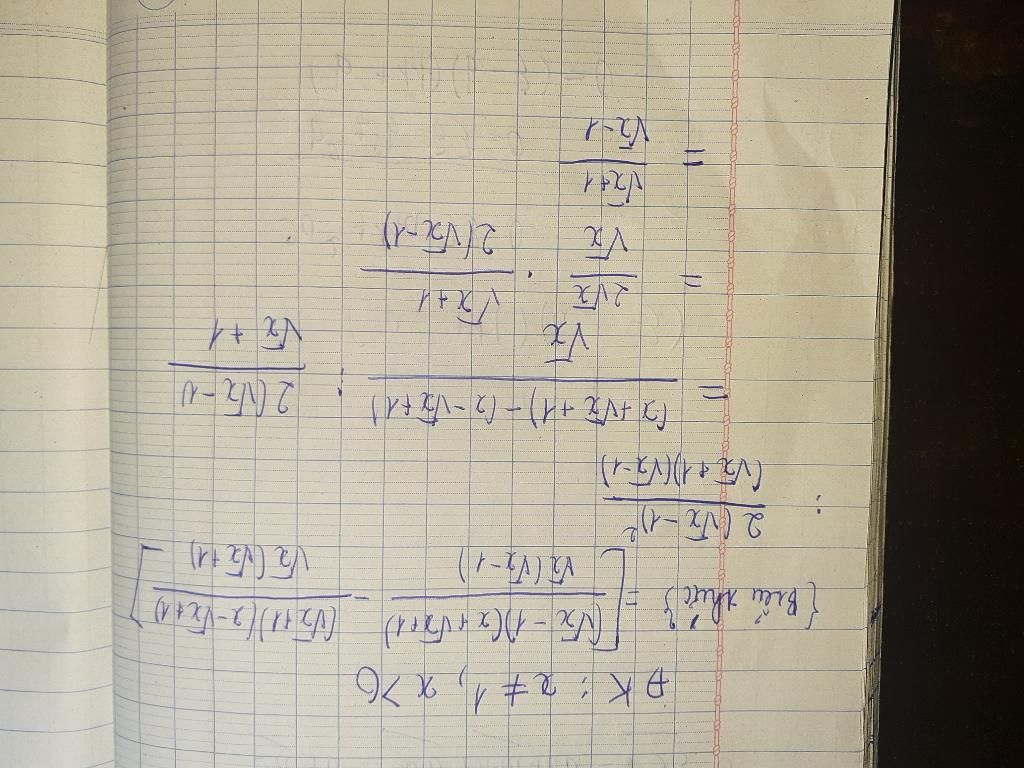 ĐK : x ≠ 1, x > 0
{Biểu thức} = [ (√x - 1)(x + √x + 1) / √x(√x - 1) - (√x + 1)(x - √x + 1) / √x(√x + 1) ]
: 2(√x - 1)² / (√x + 1)(√x - 1)
= (x + √x + 1) - (x - √x + 1) / √x : 2(√x - 1) / √x + 1
= 2√x / √x . √x + 1 / 2(√x - 1)
= √x + 1 / √x - 1